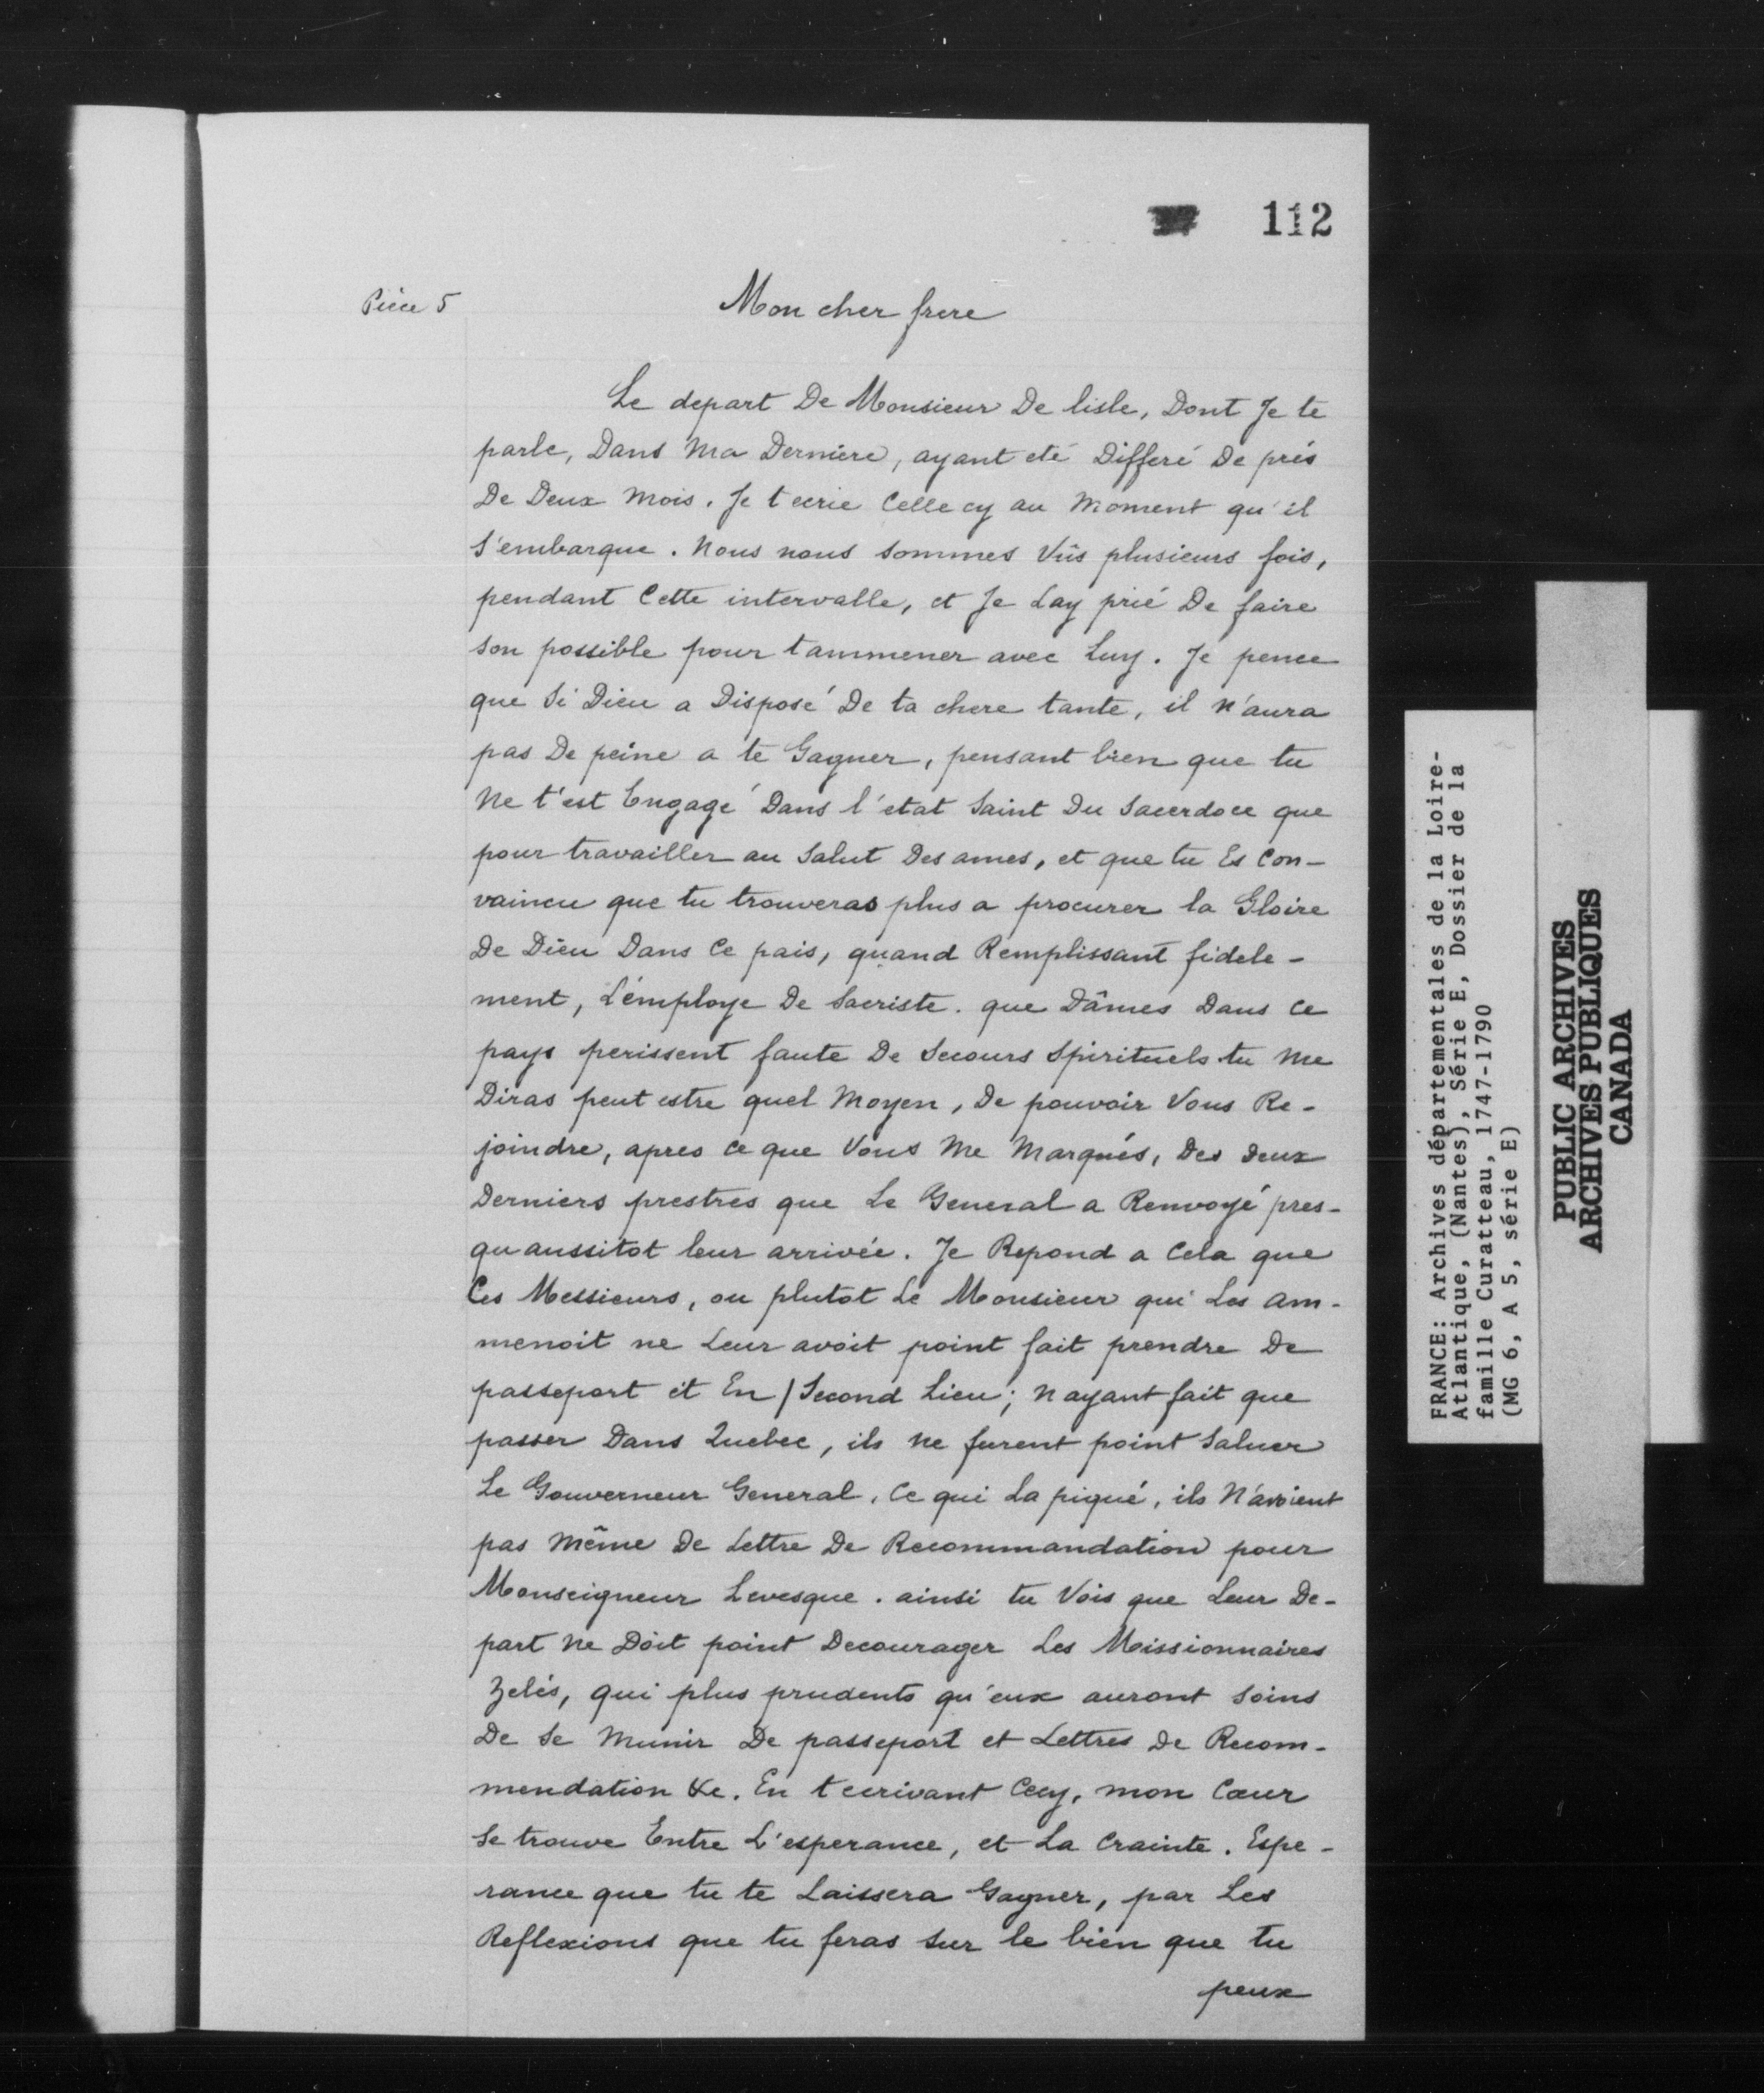 112
Pièce 5
Mon cher frere
Le depart De Monsieur De lisle, Dont Je te
parle, Dans Ma Derniere, ayant eté Differé De prés
De Deux Mois. Je t ecrie Celle cy au Moment qu'il
S'embarque. Nous nous sommes Vûs plusieurs fois,
pendant Cette intervalle, et Je Lay prié De faire
son possible pour tammener avec Luy. Je pence
que Si Dieu a Disposé De ta chere tante, il N'aura
pas De peine a te Gagner, pensant bien que tu
Ne t'est Engagé Dans l'etat Saint Du Sacerdoce que
pour travailler au Salut Des ames, et que tu Es Con-
vaincu que tu trouveras plus a procurer la Gloire
De Dieu Dans Ce pais, quand Remplissant fidele-
ment, L'employe De Sacriste. que Dâmes Dans Ce
pays perissent faute De Secours Spirituels tu Me
Diras peut estre quel Moyen, De pouvoir Vous Re-
joindre, apres Ce que Vous Me Marqués, Des Deux
Derniers prestres que Le General a Renvoyé pres-
qu aussitot leur arrivée. Je Repond a Cela que
Ces Messieurs, ou plutot Le Monsieur qui Les am-
menoit ne Leur avoit point fait prendre De
passeport et En / Second Lieu; N ayant fait que
passer Dans Quebec, ils Ne furent point Saluer
Le Gouverneur General. Ce qui La piqué, ils N'avoient
pas Même De Lettre De Recommandation pour
Monseigneur Levesque. ainsi tu Vois que Leur De-
part Ne Doit point Decourager Les Missionnaires
Zelés, qui plus prudents qu'eux auront Soins
De Se Munir De passeport et Lettres De Recom-
mendation &c. En t ecrivant Cecy, mon Cœur
Se trouve Entre L'esperance, et La Crainte. Espe-
rance que tu te Laissera Gagner, par Les
Reflexions que tu feras Sur le bien que tu
peux
FRANCE: Archives départementales de la Loire-
Atlantique, (Nantes), Série E, Dossier de la
famille Curatteau, 1747-1790
(MG 6, A 5, série E)
PUBLIC ARCHIVES
ARCHIVES PUBLIQUES
CANADA